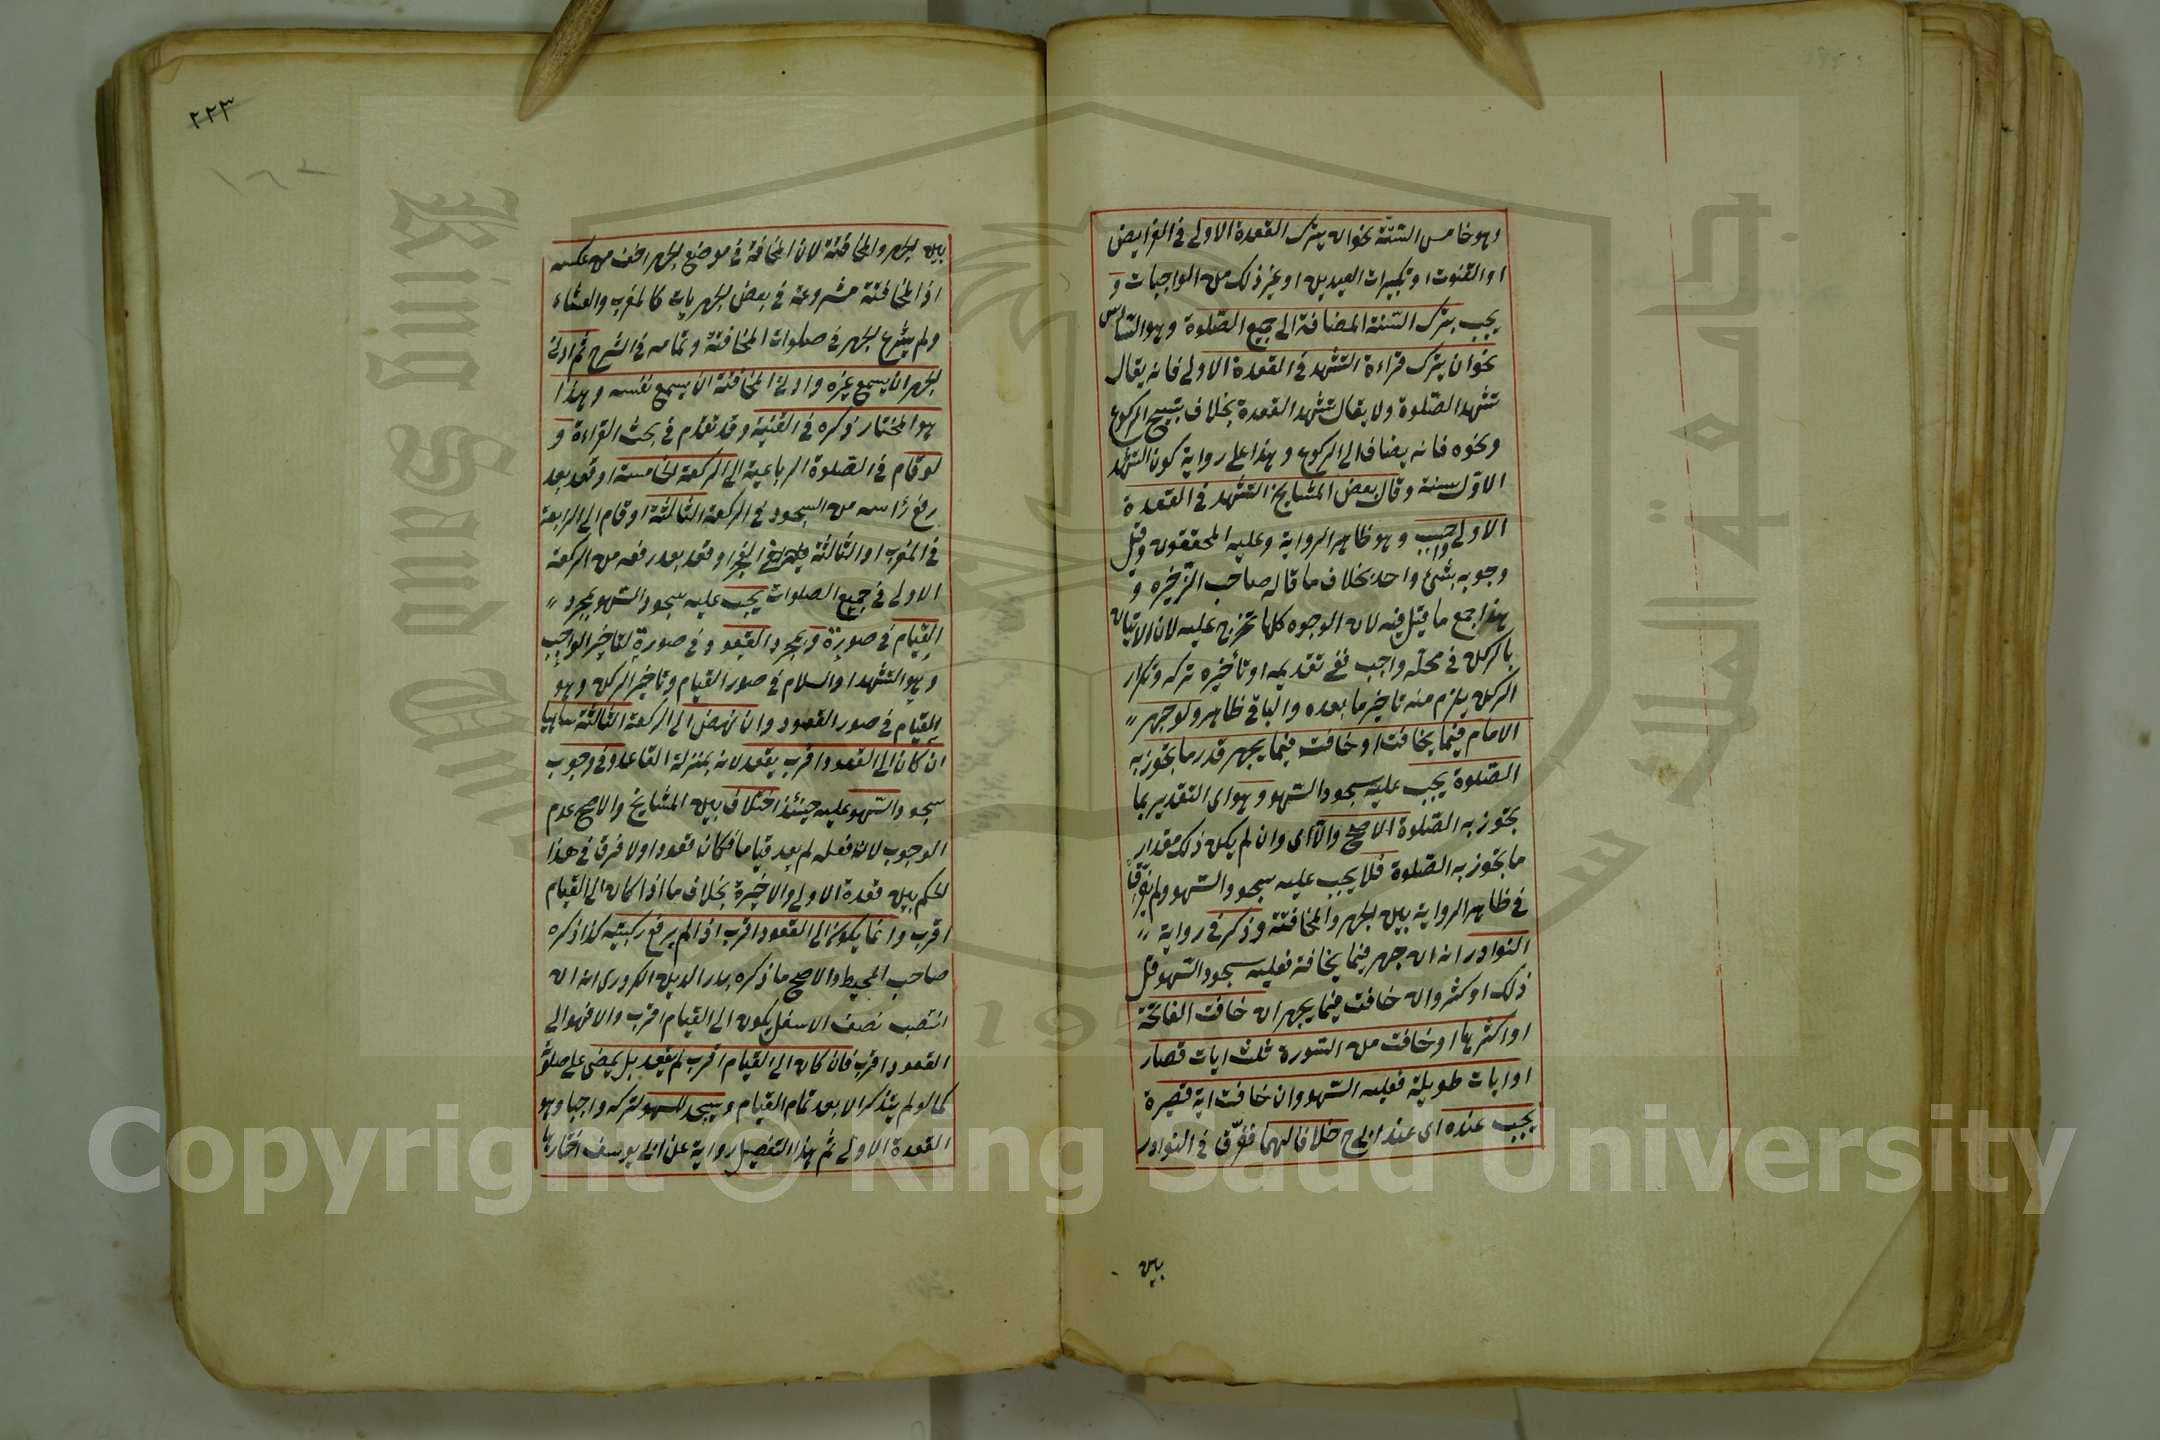 وهو خامس الستة نحو ان يترك القعدة الاولى في الفرايض
او القنوت او تكبيرات العيدين او غير ذلك من الواجبات و
يجب بترك السنة المضافة الى جميع الصلوة وهو السادس
نحو ان يترك قراءة التشهد في القعدة الاولى فانه يقال
تشهد الصلوة ولا يقال تشهد القعدة بخلاف تسبيح الركوع
ونحوه فانه يضاف الى الركوع وهذا على رواية كون التشهد
الاول سنة وقال بعض المشايخ التشهد في القعدة
الاولى واجب وهو ظاهر الرواية وعليه المحققون وقيل
وجوبه بشئ واحد بخلاف ما قاله صاحب الذخيره و
هذا جمع ما قيل فيه لان الوجوه كلها تخرج عليه لان الاتيان
بالركن في محله واجب ففي تقديمه او تأخيره تركه وتكرار
الركن يلزم منه تاخير ما بعده والباقي ظاهر ولو جهر
الامام فيما يخافت او خافت فيما يجهر قدر ما يجوز به
الصلوة يجب عليه سجود السهو وهو اى التقدير بما
يجوز به الصلوة الاصح والا اى وان لم يكن ذلك مقدار
ما يجوز به الصلوة فلا يجب عليه سجود السهو ولم يفرق
في ظاهر الرواية بين الجهر والمخافتة وذكر في رواية
النوادر انه ان جهر فيما يخافة فعليه سجود السهو قل
ذلك او كثر وان خافت فيما يجهر ان خافت الفاتحة
او اكثرها او خافت من السورة ثلث ايات قصار
او ايات طويلة فعليه السهو وان خافت اية قصيرة
يجب عنده اى عند ابى ح خلافا لهما ففرق في النوادر
بين
٢٢٣
بين الجهر والمخافتة لان المخافة في موضع الجهر اخف من عكسه
اذ المخافتة مشروعة في بعض الجهريات كالمغرب والعشاء
ولم يشرع الجهر في صلوات المخافتة وتمامه في الشرح ثم ادنى
الجهر ان يسمع غيره وادنى المخافتة ان يسمع نفسه وهذا
هو المختار ذكره في القنية وقد تقدم في بحث القراءة و
لو قام في الصلوة الرباعية الى الركعة الخامسة او قعد بعد
رفع رأسه من السجود في الركعة الثالثة او قام الى الرابعة
في المغرب او الثالثة في الفجر او قعد بعد رفعه من الركعة
الاولى في جميع الصلوات يجب عليه سجود السهو بمجرد
القيام في صورة وبمجرد القعود في صورة لتاخير الواجب
وهو التشهد او السلام في صور القيام وتاخير الركن وهو
القيام في صور القعود وان نهض الى الركعة الثالثة ساهيا
ان كان الى القعود اقرب يقعد لانه بمنزلة القاعد وفي وجوب
سجود السهو عليه حينئذ اختلاف بين المشايخ والاصح عدم
الوجوب لان فعله لم يعد قياما فكان قعودا ولا فرق في هذا
الحكم بين قعدة الاولى والاخيرة بخلاف ما اذا كان الى القيام
اقرب وانما يكون الى القعود اقرب اذا لم يرفع ركبتيه كذا ذكره
صاحب المحيط والاصح ما ذكره بدر الدين الكردرى انه ان
انتصب نصف الاسفل يكون الى القيام اقرب والا فهو الى
القعود اقرب فان كان الى القيام اقرب لم يقعد بل يمضى على صلوته
كما لو لم يتذكر الا بعد تمام القيام ويسجد للسهو لتركه واجبا وهو
القعدة الاولى ثم هذا التفصيل رواية عن ابى يوسف اختارها
Copyright © King Saud University